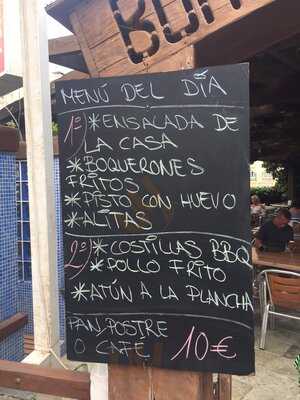 MENÚ DEL DÍA
1º) *ENSALADA DE
LA CASA
*BOQUERONES
FRITOS
*PISTO CON HUEVO
*ALITAS
2º) *COSTILLAS BBQ
*POLLO FRITO
*ATÚN A LA PLANCHA
PAN, POSTRE
O CAFÉ 10€